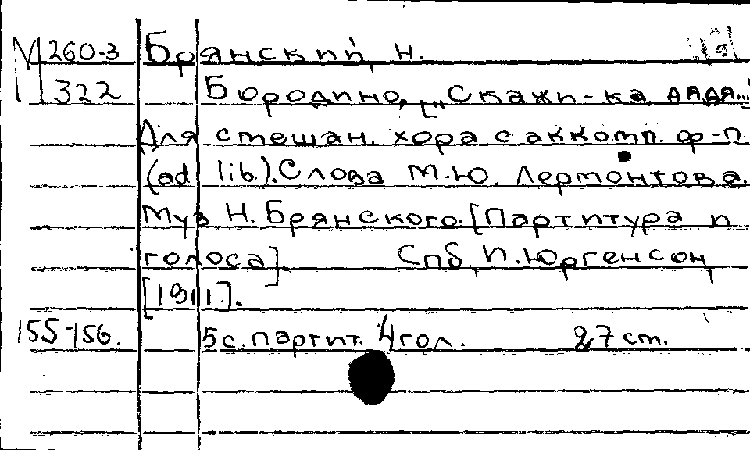 М 260-3 Брянский, Н.
322 Бородино, ["Скажи-ка, дядя..."]
Для смешан. хора с аккомп. ф-п.
(ad lib.). Слова М.Ю. Лермонтова.
Муз. Н. Брянского. [Партитура и
голоса]. Спб, П. Юргенсон,
[1911].
155-156. 5 с. партит. 4 гол. 27 см.